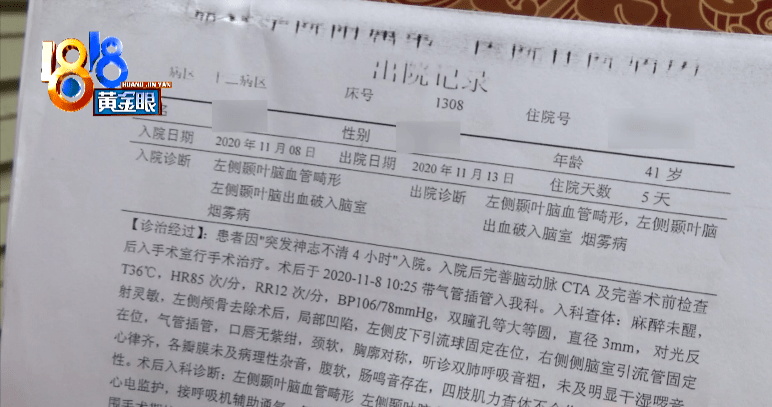 1818
HUANG JIN YAN
黄金眼
出院记录
病区 十二病区 床号 1308 住院号
性别 年龄 41 岁
入院日期 2020 年 11 月 08 日 出院日期 2020 年 11 月 13 日 住院天数 5 天
入院诊断 左侧颞叶脑血管畸形 出院诊断 左侧颞叶脑血管畸形，左侧颞叶脑
左侧颞叶脑出血破入脑室 出血破入脑室 烟雾病
烟雾病
【诊治经过】：患者因"突发神志不清 4 小时"入院。入院后完善脑动脉 CTA 及完善术前检查
后入手术室行手术治疗。术后于 2020-11-8 10:25 带气管插管入我科。入科查体：麻醉未醒，
T36℃，HR85 次/分，RR12 次/分，BP106/78mmHg，双瞳孔等大等圆，直径 3mm，对光反
射灵敏，左侧颅骨去除术后，局部凹陷，左侧皮下引流球固定在位，右侧侧脑室引流管固定
在位，气管插管，口唇无紫绀，颈软，胸廓对称，听诊双肺呼吸音粗，未及明显干湿啰音
心律齐，各瓣膜未及病理性杂音，腹软，肠鸣音存在，四肢肌力查体不
性。术后入科诊断：左侧颞叶脑血管畸形 左侧颞叶脑
心电监护，接呼吸机辅助通气